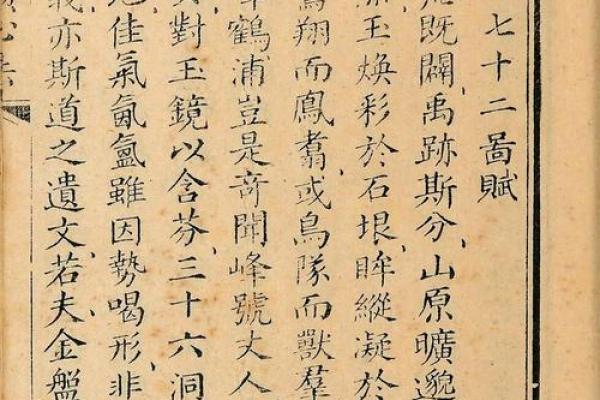 七十二啚賦
既闢禹跡斯分山原曠邈
玉煥彩於石垠眸縱凝於
翔而鳯翥或鳥隊而獸羣
鶴浦豈是竒聞峰號丈人
對玉鏡以含芬三十六洞
佳氣氤氳雖因勢喝形非
亦斯道之遺文若夫金盤